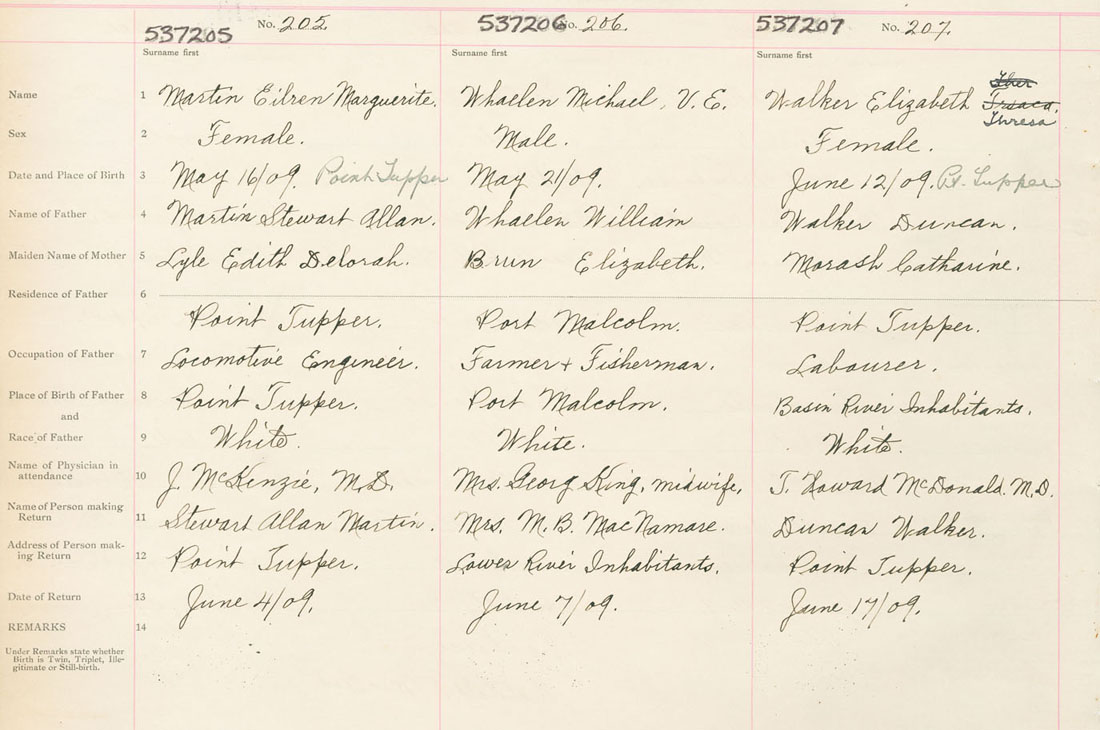 537205 No. 205. 537206 No. 206. 537207 No. 207.
Surname first Surname first Surname first
Ther
Name 1 Martin Eilren Marguerite. Whaelen Michael, V. E. Walker Elizabeth
Thresa
Sex 2 Female. Male. Female.
Date and Place of Birth 3 May 16/09. Point Tupper May 21/09. June 12/09. Pt. Tupper
Name of Father 4 Martin Stewart Allan. Whaelen William Walker Duncan.
Maiden Name of Mother 5 Lyle Edith Deborah. Brun Elizabeth. Morash Catharine.
Residence of Father 6
Point Tupper. Port Malcolm. Point Tupper.
Occupation of Father 7 Locomotive Engineer. Farmer + Fisherman. Labourer.
Place of Birth of Father 8 Point Tupper. Port Malcolm. Basin River Inhabitants.
and
Race of Father 9 White. White. White.
Name of Physician in
attendance 10 J. McKenzie, M.D. Mrs. Georg King, midwife, T. Howard McDonald. M.D.
Name of Person making
Return 11 Stewart Allan Martin. Mrs. M. B. MacNamare. Duncan Walker.
Address of Person mak-
ing Return 12 Point Tupper. Lower River Inhabitants. Point Tupper.
Date of Return 13 June 4/09. June 7/09. June 17/09.
REMARKS 14
Under Remarks state whether
Birth is Twin, Triplet, Ille-
gitimate or Still-birth.